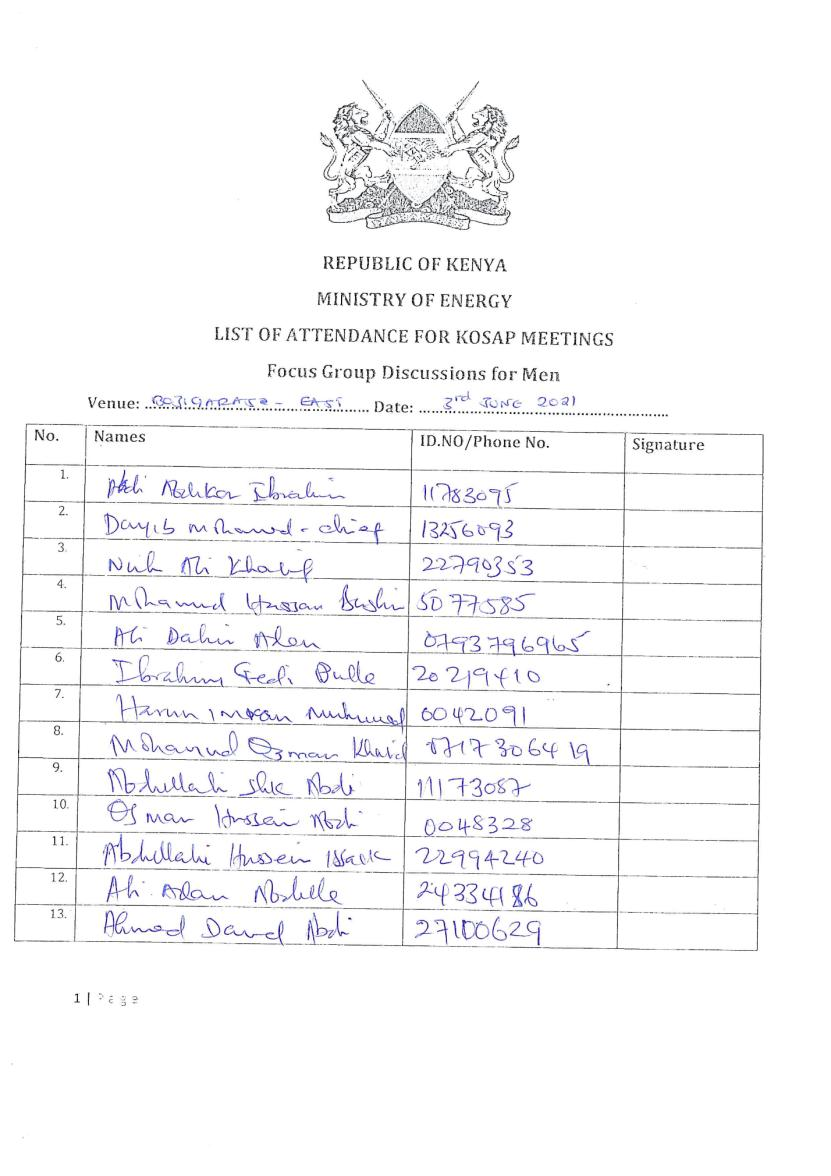 HARAMBEE
REPUBLIC OF KENYA
MINISTRY OF ENERGY
LIST OF ATTENDANCE FOR KOSAP MEETINGS
Focus Group Discussions for Men
Venue: BOJIGARASE - EAST Date: 3rd JUNE 2021
No. Names ID.NO/Phone No. Signature
1. Abdi Abdikar Ibrahim 11783095
2. Dayib Mohamed - chief 13256093
3. Nuh Ali Khalif 22790353
4. Mohamud Hassan Bashir 5077585
5. Ali Dahir Alen 0793796965
6. Ibrahim Gedi Bulle 20219410
7. Harun Imran Muhumed 0042091
8. Mohamud Osman Khalid 0717306419
9. Abdullahi Shk Abdi 11173087
10. Osman Hussein Abdi 0048328
11. Abdullahi Hussein Issack 22994240
12. Ali Adan Abdille 24334186
13. Ahmed Daud Abdi 27100629
1 | Page